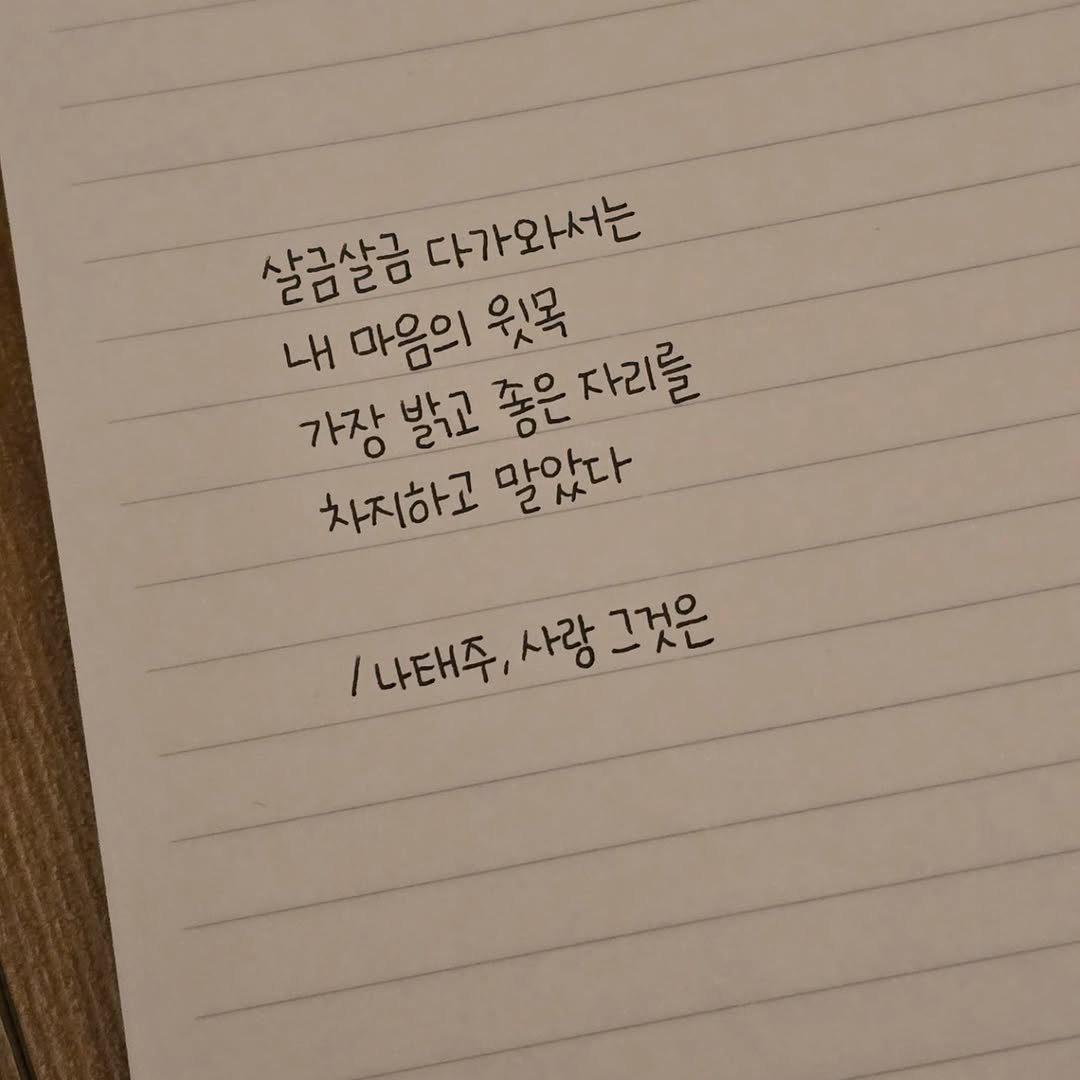 살금살금 다가와서는
내 마음의 윗목
가장 밝고 좋은 자리를
차지하고 말았다
/ 나태주, 사랑 그것은